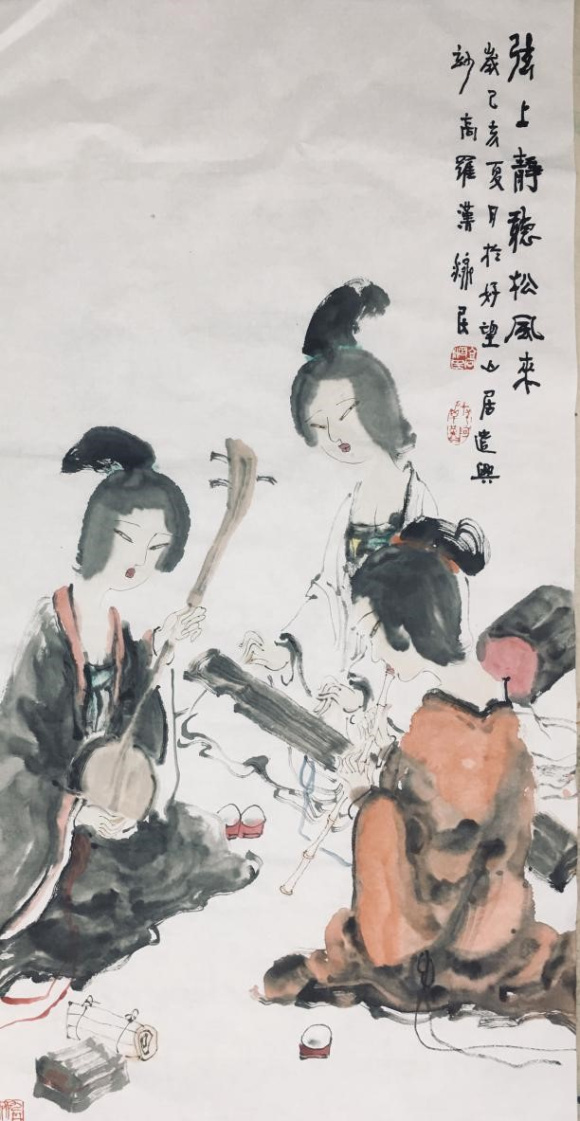 弦上靜聽松風來
歲己亥夏月於好望山居遣興
剡高羅漢錦民